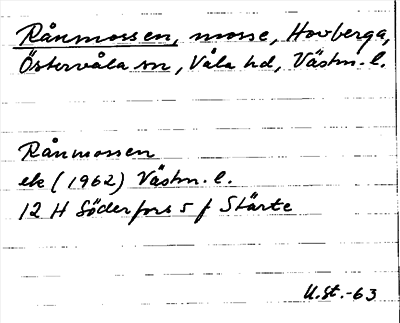 Rånmossen, mosse, Hovberga,
Östervåla sn, Våla hd, Västm. l.
Rånmossen
ek (1962) Västm. l.
12 H Söderfors 5 f Stärte
U.St.-63